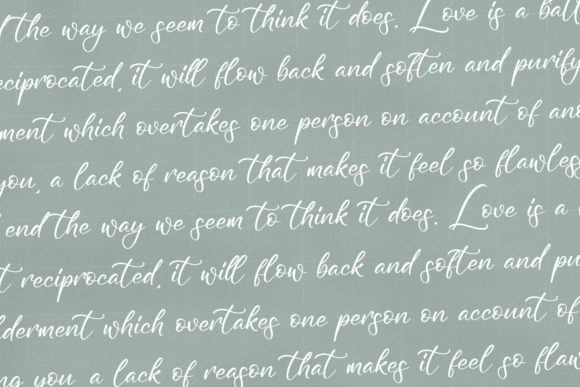 the way we seem to think it does. Love is a
reciprocated, it will flow back and soften and purify
which overtakes one person on account of
you, a lack of reason that makes it feel so
end the way we seem to think it does. Love is a
reciprocated, it will flow back and soften and
which overtakes one person on account of
you a lack of reason that makes it feel so